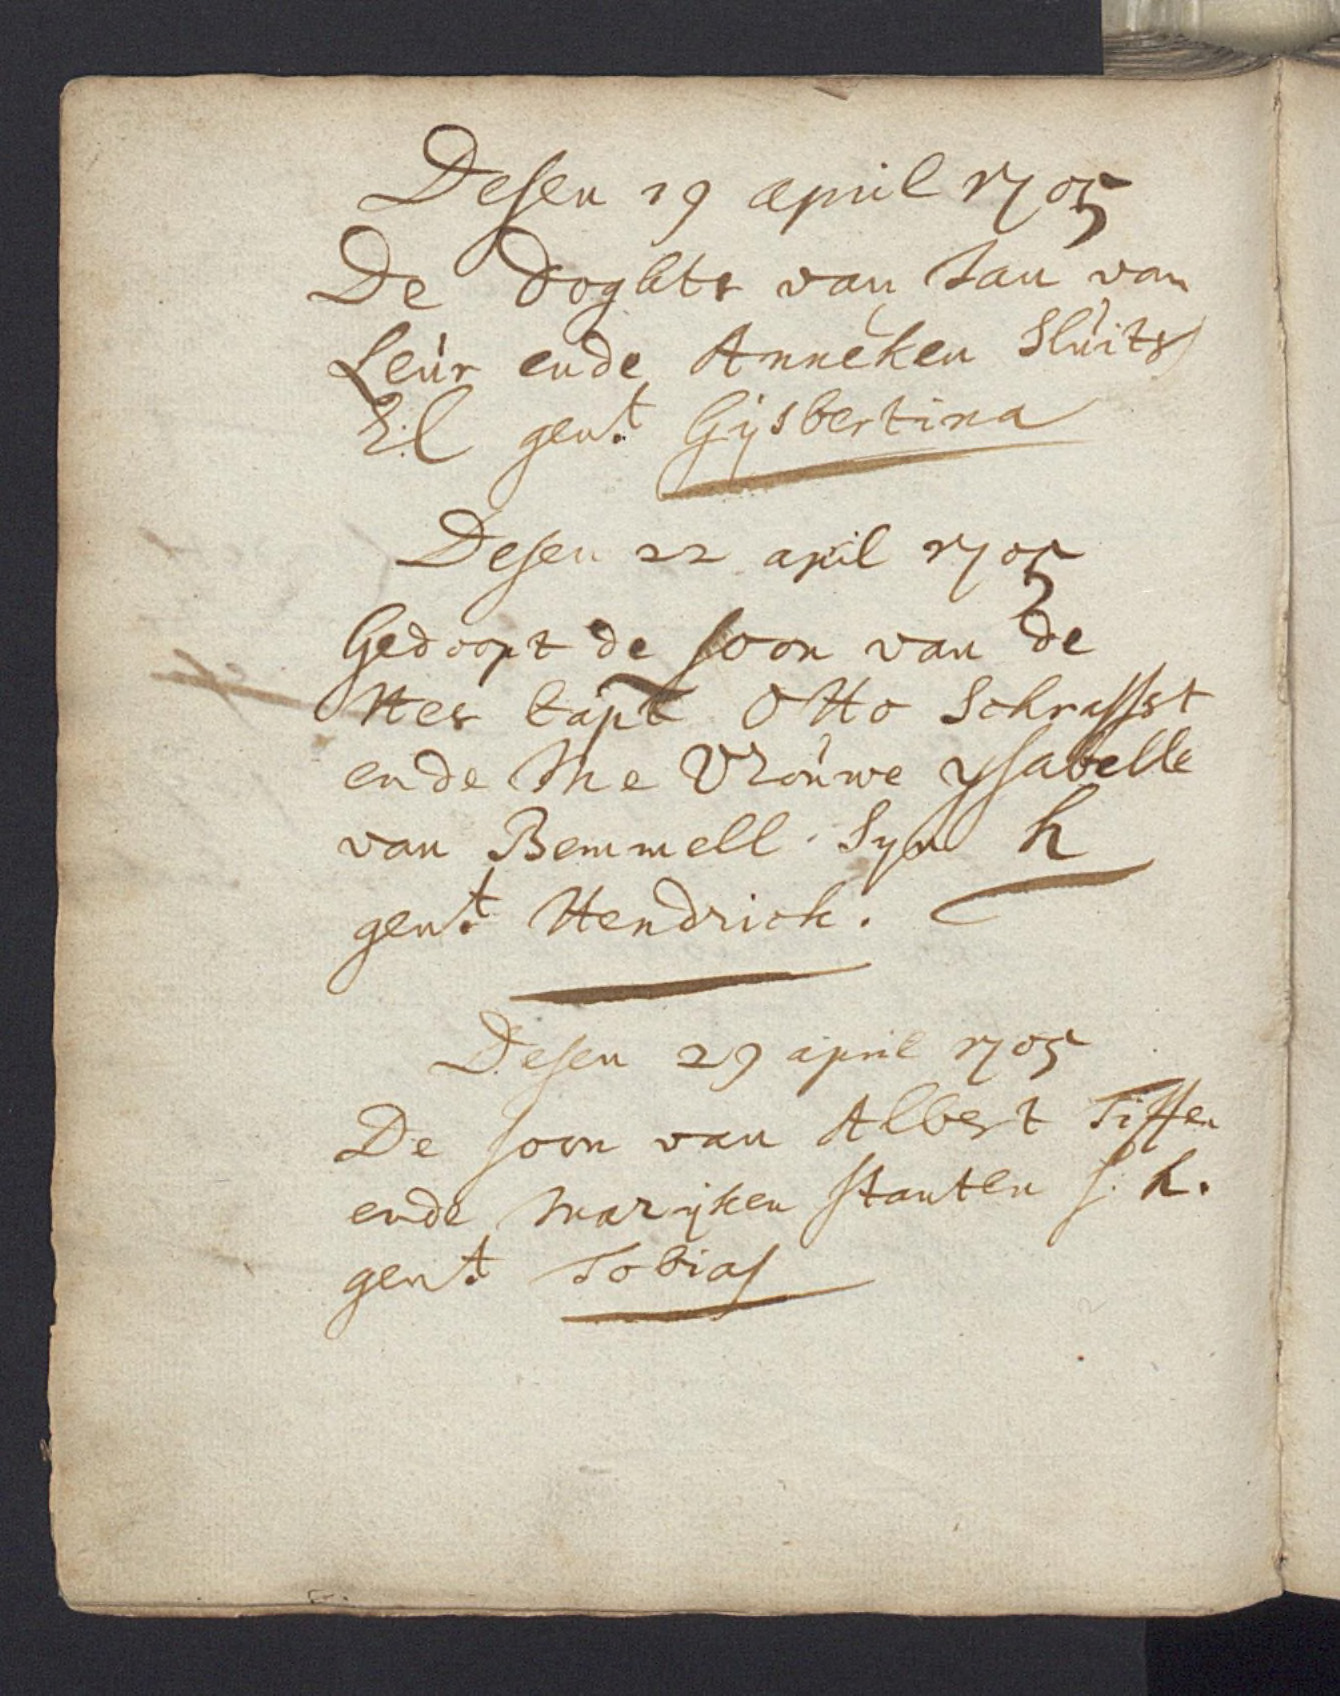 Desen 19 april 1705
De Doghtr van Jan van
Leúr ende Anneken Slúits
El gent Gijsbertina
Desen 22 april 1705
Gedoopt de soon van de
Heer Capt Otto Schrassst
ende Me Vroúwe ysabelle
van Bemmell Syn h
gent Hendrick.
Desen 29 april 1705
De soon van Albert Tissen
ende Marijken Stanten s. h.
gent Tobias